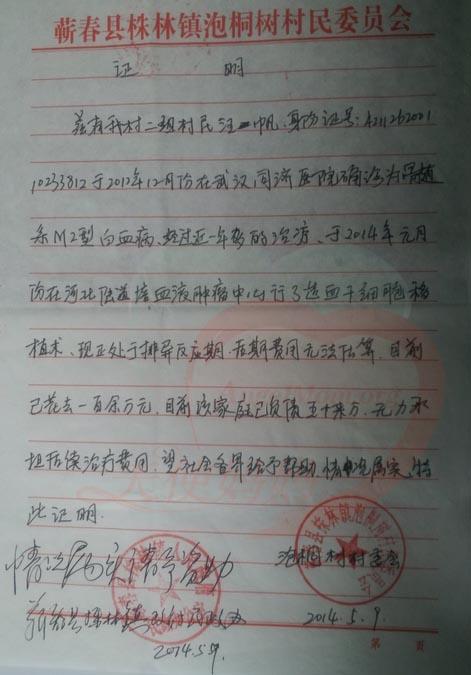 蕲春县株林镇泡桐树村民委员会
证 明
兹有我村二组村民汪一帆,身份证号:4211262001
10233812于2012年12月份在武汉同济医院确诊为
系M2型白血病,经过近一年多的治疗、于2014年元月
份在河北陆道培血液肿瘤中心行了造血干细胞移
植术、现正处于排异反应期、后期费用无法估算、目前
已花去一百余万元、目前该家庭已负债五十来万、无力承
担后续治疗费用、望社会各界给予帮助、情况属实、特
此证明.
情况属实、请予资助
泡桐树村村委会
蕲春县株林镇
2014.5.9.
2014.5.9.
第 页